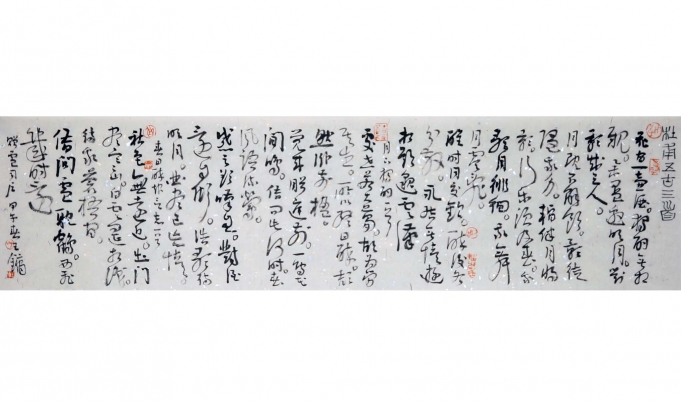 花间一壶酒。独酌无相
亲。举杯邀明月。对
影成三人。
月既不解饮。影徒
随我身。暂伴月将
影。行乐须及春。我
歌月徘徊。我舞
零乱
醒时同交欢。醉后各
分散。永结无情游
相期邈云汉
月下独酌
处世若大梦。胡为劳
其生。所以终日醉。颓
然卧前楹。
觉来眄庭前。一鸟花
间鸣。借问此何时。春
风语流莺。
感之欲叹息。对酒
还自倾。浩歌待
明月。曲尽已忘情。
春日醉起言志
秋色无远近。出门
尽寒山。白云遥相识。
待我苍梧间。
借问卢耽鹤。西飞
几岁
甲午